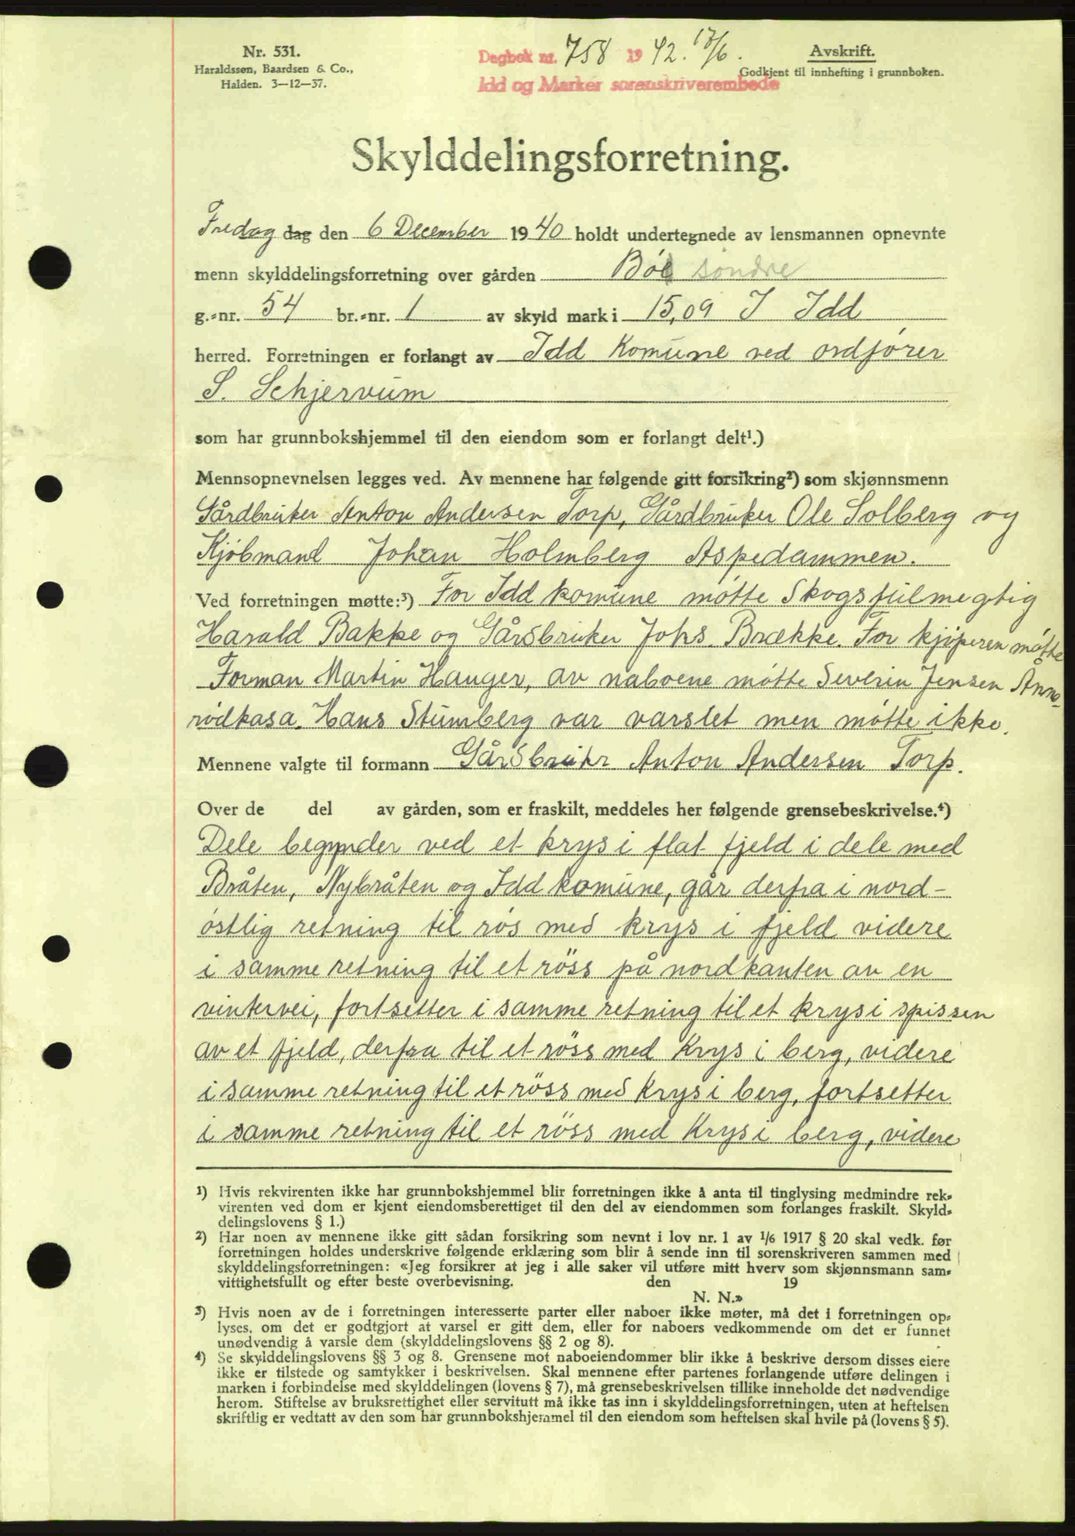 Nr. 531.
Haraldssen, Baardsen & Co.,
Halden. 3—12—37.
Dagbok nr. 758 1942. 17/6.
Idd og Marker sorenskriverembede
Avskrift.
Godkjent til innhefting i grunnboken.
Skylddelingsforretning.
Fredag dag den 6 December 1940 holdt undertegnede av lensmannen opnevnte
menn skylddelingsforretning over gården Böe söndre
g.-nr. 54 br.-nr. 1 av skyld mark i 15,09 I Idd
herred. Forretningen er forlangt av Idd Komune ved ordförer
S. Schjervum
som har grunnbokshjemmel til den eiendom som er forlangt delt¹.)
Mennsopnevnelsen legges ved. Av mennene har følgende gitt forsikring²) som skjønnsmenn
Gårdbruker Anton Andersen Torp, Gårdbruker Ole Solberg og
Kjöbmand Johan Holmberg Aspedammen.
Ved forretningen møtte:³) For Idd komune mötte Skogsfulmegtig
Harald Bakke og Gårdbruker Johs. Brække. For kjöperen mötte
Forman Martin Hauger, av naboene mötte Severin Jensen Ånne-
rödkasa. Hans Stumberg var varslet men mötte ikke.
Mennene valgte til formann Gårdbruker Anton Andersen Torp.
Over de del av gården, som er fraskilt, meddeles her følgende grensebeskrivelse.⁴)
Dele begynder ved et krys i flat fjeld i dele med
Bråten, Nybråten og Idd komune, går derfra i nord-
östlig retning til rös med krys i fjeld videre
i samme retning til et röss på nordkanten av en
vintervei, fortsetter i samme retning til et krys i spissen
av et fjeld, derfra til et röss med Krys i berg, videre
i samme retning til et röss med krys i berg, fortsetter
i samme retning til et röss med Krys i berg, videre
¹) Hvis rekvirenten ikke har grunnbokshjemmel blir forretningen ikke å anta til tinglysing medmindre rek-
virenten ved dom er kjent eiendomsberettiget til den del av eiendommen som forlanges fraskilt. Skyld-
delingslovens § 1.)
²) Har noen av mennene ikke gitt sådan forsikring som nevnt i lov nr. 1 av 1/6 1917 § 20 skal vedk. før
forretningen holdes underskrive følgende erklæring som blir å sende inn til sorenskriveren sammen med
skylddelingsforretningen: «Jeg forsikrer at jeg i alle saker vil utføre mitt hverv som skjønnsmann sam-
vittighetsfullt og efter beste overbevisning. den 19
N. N.»
³) Hvis noen av de i forretningen interesserte parter eller naboer ikke møter, må det i forretningen op-
lyses, om det er godtgjort at varsel er gitt dem, eller for naboers vedkommende om det er funnet
unødvendig å varsle dem (skylddelingslovens §§ 2 og 8).
⁴) Se skylddelingslovens §§ 3 og 8. Grensene mot naboeiendommer blir ikke å beskrive dersom disses eiere
ikke er tilstede og samtykker i beskrivelsen. Skal mennene efter partenes forlangende utføre delingen i
marken i forbindelse med skylddelingen (lovens § 7), må grensebeskrivelsen tillike inneholde det nødvendige
herom. Stiftelse av bruksrettighet eller servitutt må ikke tas inn i skylddelingsforretningen, uten at heftelsen
skriftlig er vedtatt av den som har grunnbokshjemmel til den eiendom som heftelsen skal hvile på (lovens § 5).